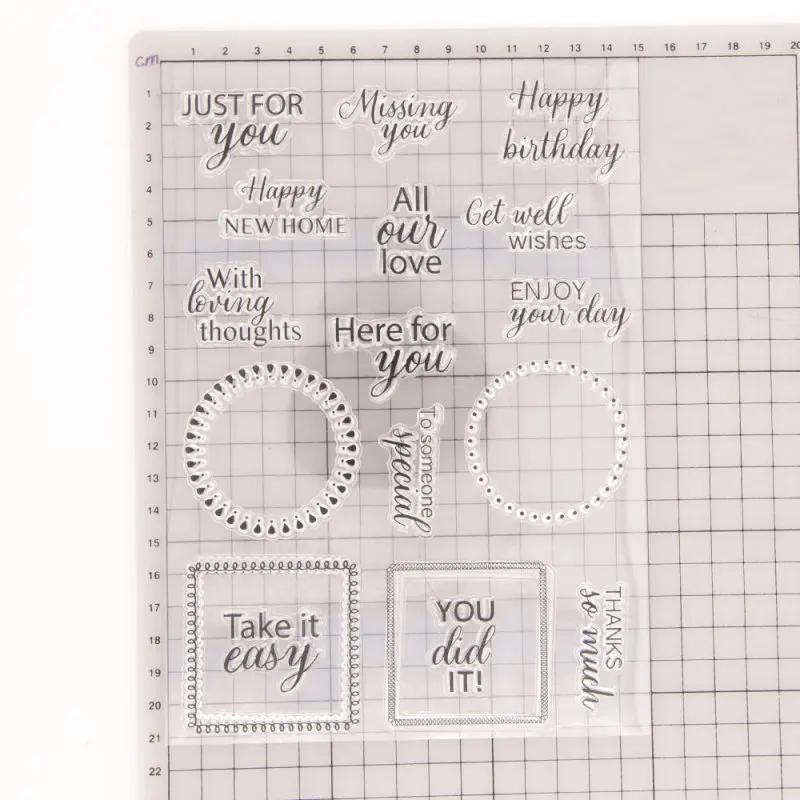 cm
1 2 3 4 5 6 7 8 9 10 11 12 13 14 15 16 17 18 19 20
1
2
3
4
5
6
7
8
9
10
11
12
13
14
15
16
17
18
19
20
21
22
JUST FOR
you
Missing
you
Happy
birthday
Happy
NEW HOME
All
our
love
Get well
wishes
With
loving
thoughts
Here for
you
ENJOY
your day
To someone
special
Take it
easy
YOU
did
IT!
THANKS
so much